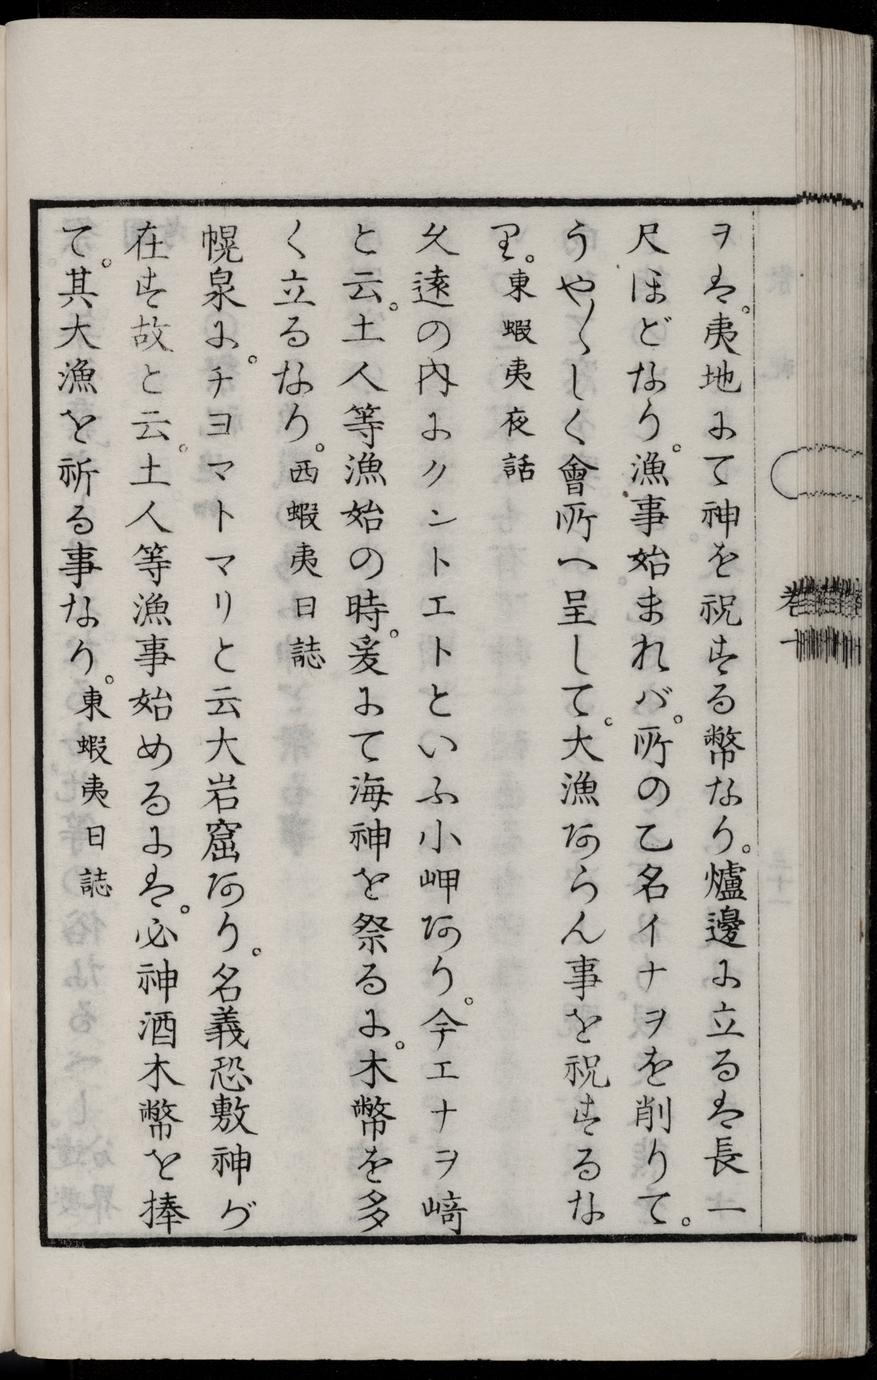 ヲハ。夷地にて神を祝する幣なり。爐邊に立るハ長一
尺ほどなり。漁事始まれバ。所の乙名イナヲを削りて。
うや〳〵しく會所へ呈して。大漁あらん事を祝するな
り。東蝦夷夜話
久遠の内にクントエトといふ小岬あり。今エナヲ﨑
と云。土人等漁始の時。爰にて海神を祭るに。木幣を多
く立るなり。西蝦夷日誌
幌泉に。チヨマトマリと云大岩窟あり。名義恐敷神が
在す故と云。土人等漁事始めるにハ。必神酒木幣を捧
て。其大漁を祈る事なり。東蝦夷日誌
卷一